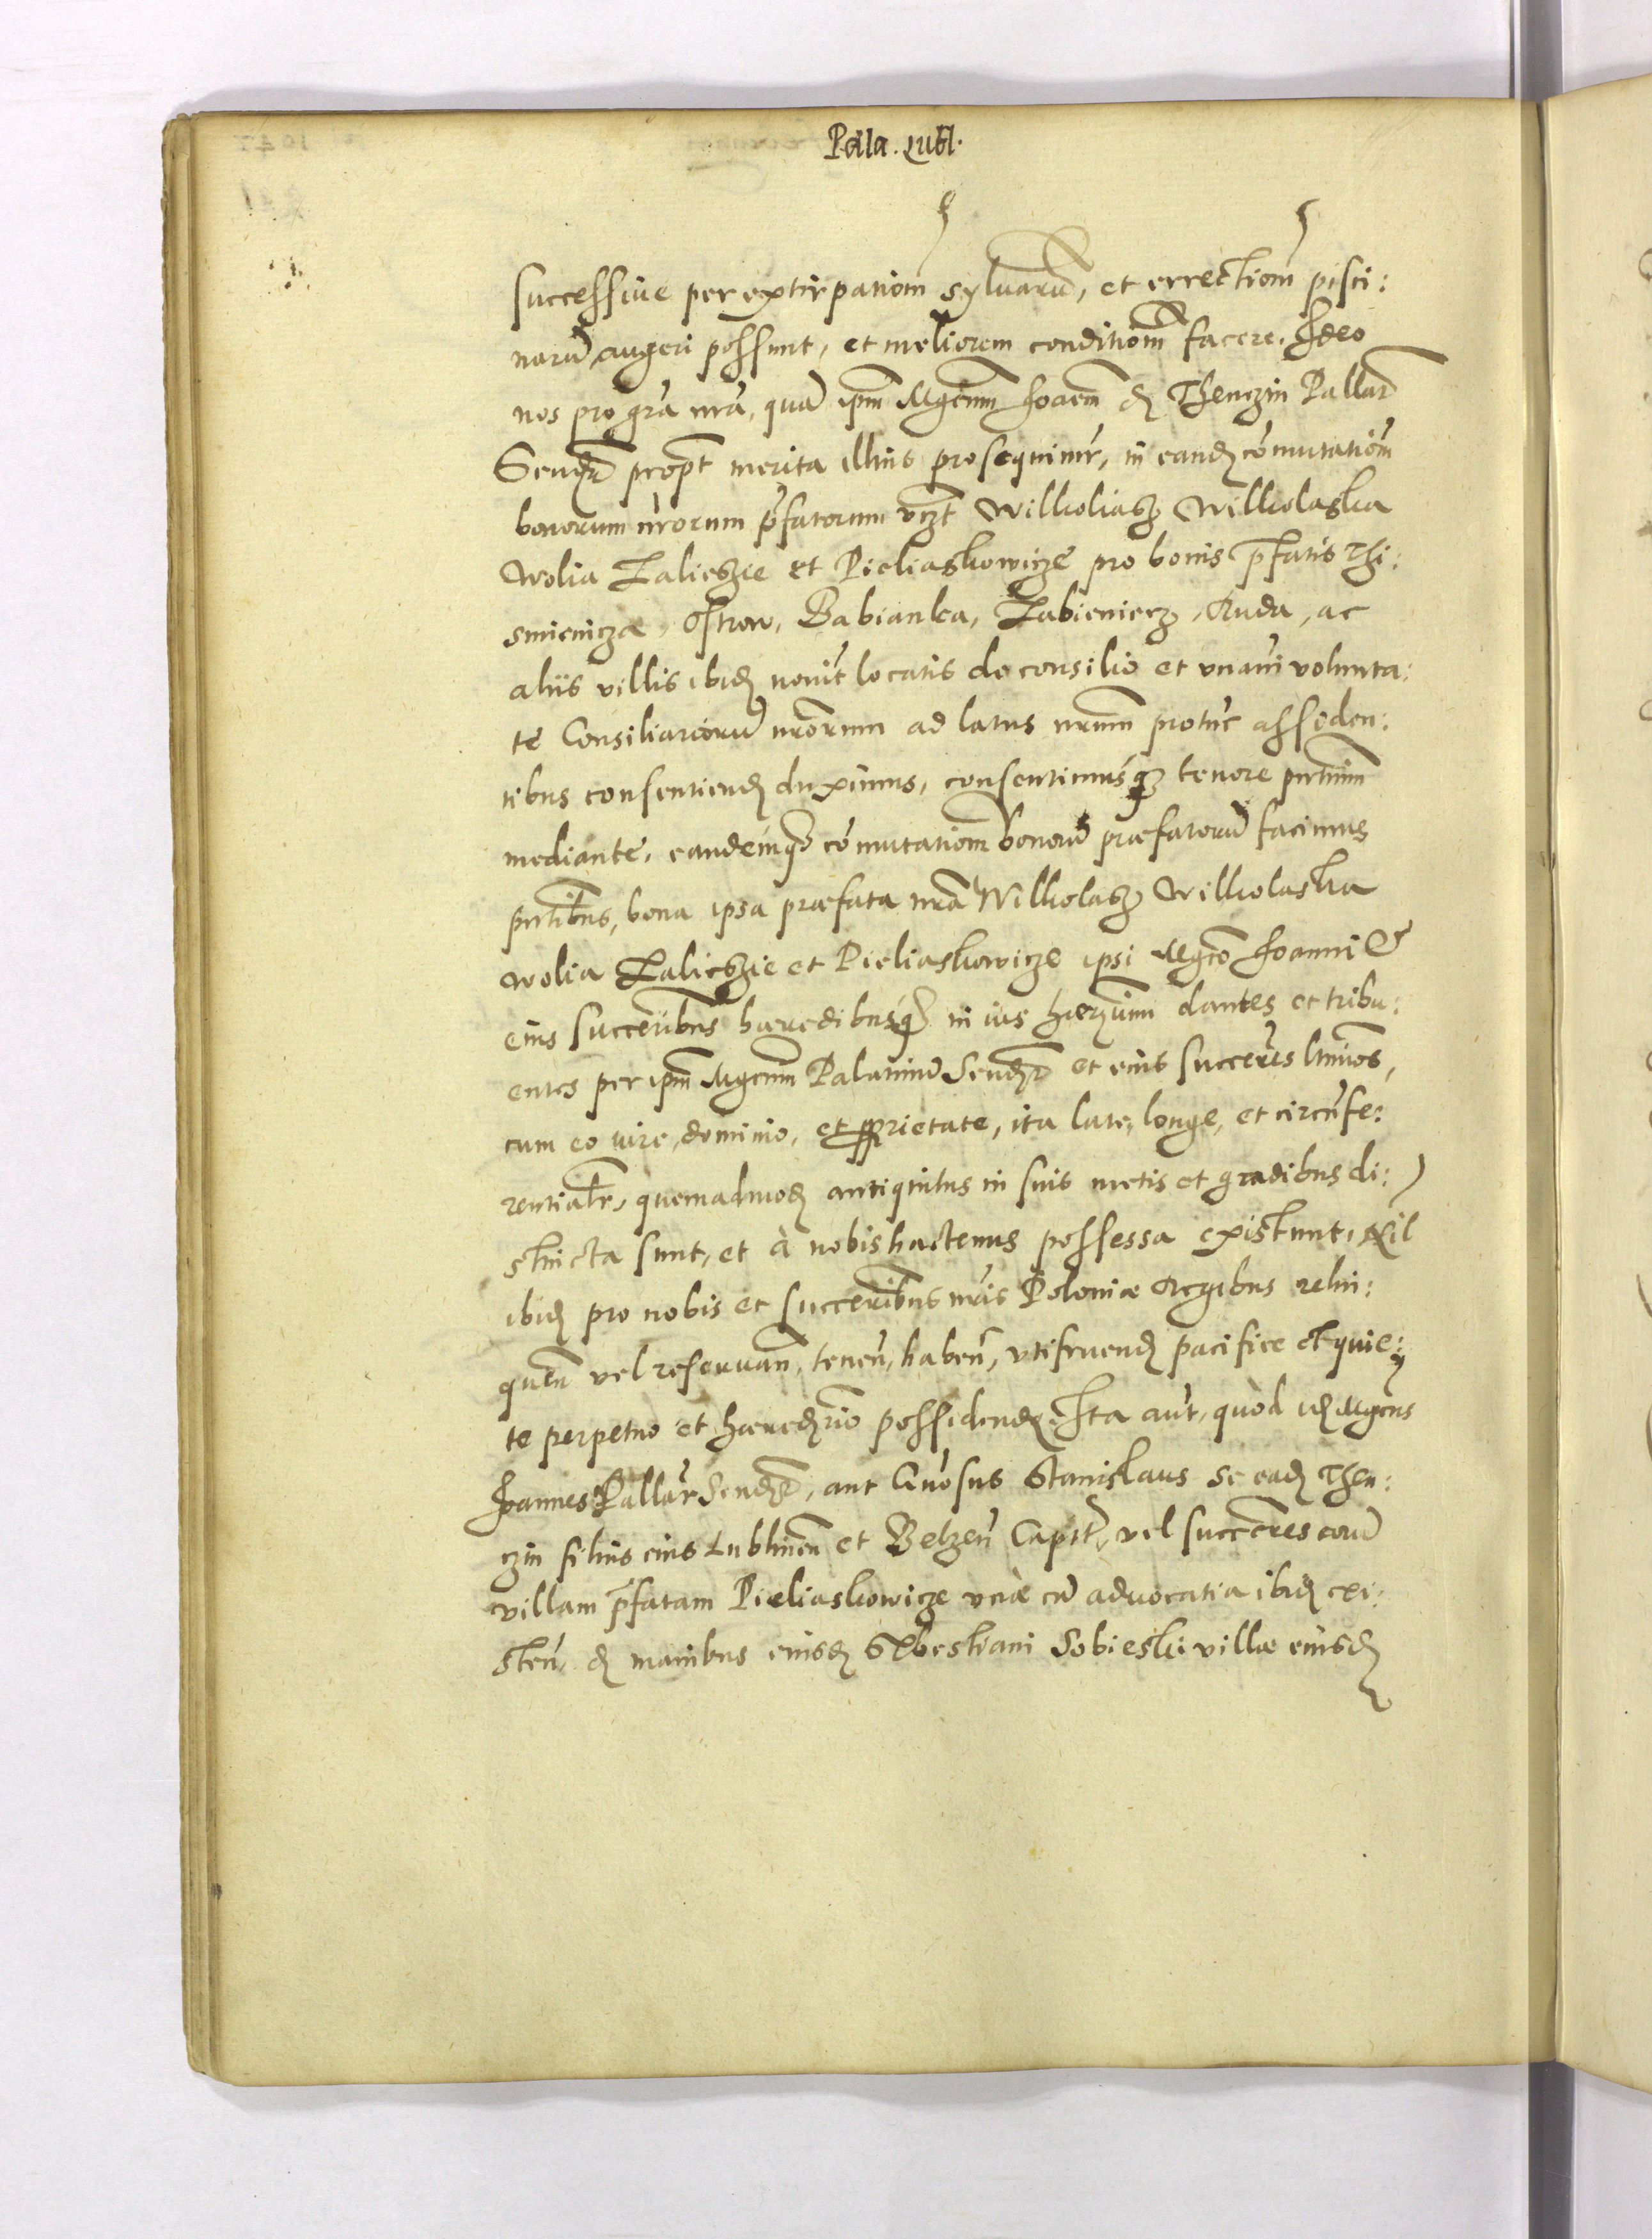 Pala. Lubl.
successiue per extirpationē syluarū, et errectionē pisci:
narū augeri possunt, et meliorem conditionē facere. Ideo
nos pro gra nra, qua ipm Mgcum Joaem de Thenczin Pallat
Sendz propt merita illius prosequimr, in eand comutationē
bonorum nrorum pfatorum vczt Wilkoliasz Wilkolaska
Wolia Zalieszie et Pieliaskowicze pro bonis pfatis Thi:
smienicza, Ostrow, Babianka, Zabienierz, Ruda, ac
aliis villis ibid nouit locatis de consilio et vnaui volunta:
te Consiliariorū nrorum ad latus nrum protūc assiden:
tibus consentiend duximus, consentimusq tenore pntium
mediante, eandemq comutationē bonorū praefatorū facimus
pntibus, bona ipsa praefata nra Wilkolasz Wilkolaska
Wolia Zalieszie et Pieliaskowicze ipsi Mgco Joanni &
eius succribus haeredibusq in ius haerzium dantes et tribu:
entes per ipm Mgcum Palatinū Sendz et eius succres ltimos,
cum eo iure, dominio, et pprietate, ita late, longe, et circūfe:
rentialr, quemadmod antiquitus in suis metis et gradibus di:
stincta sunt, et à nobis hactenus possessa existunt, Nil
ibid pro nobis et succribus nris Poloniae Regibus relin:
quen vel reseruan, tenen, haben, vtifruend pacifice et quie:
te perpetuo et haeredrio possidend. Ita aut, quòd id Mgcus
Joannes Pallat Sendz, aut Gnosus Stanislaus de ead Then:
czin filius eius Lublinen et Belzen Capit, vel succres eorū
villam pfatam Pieliaskowicze vnà cū aduocatia ibid exi:
sten, de manibus eiusd Sebestiani Sobieski villae eiusd